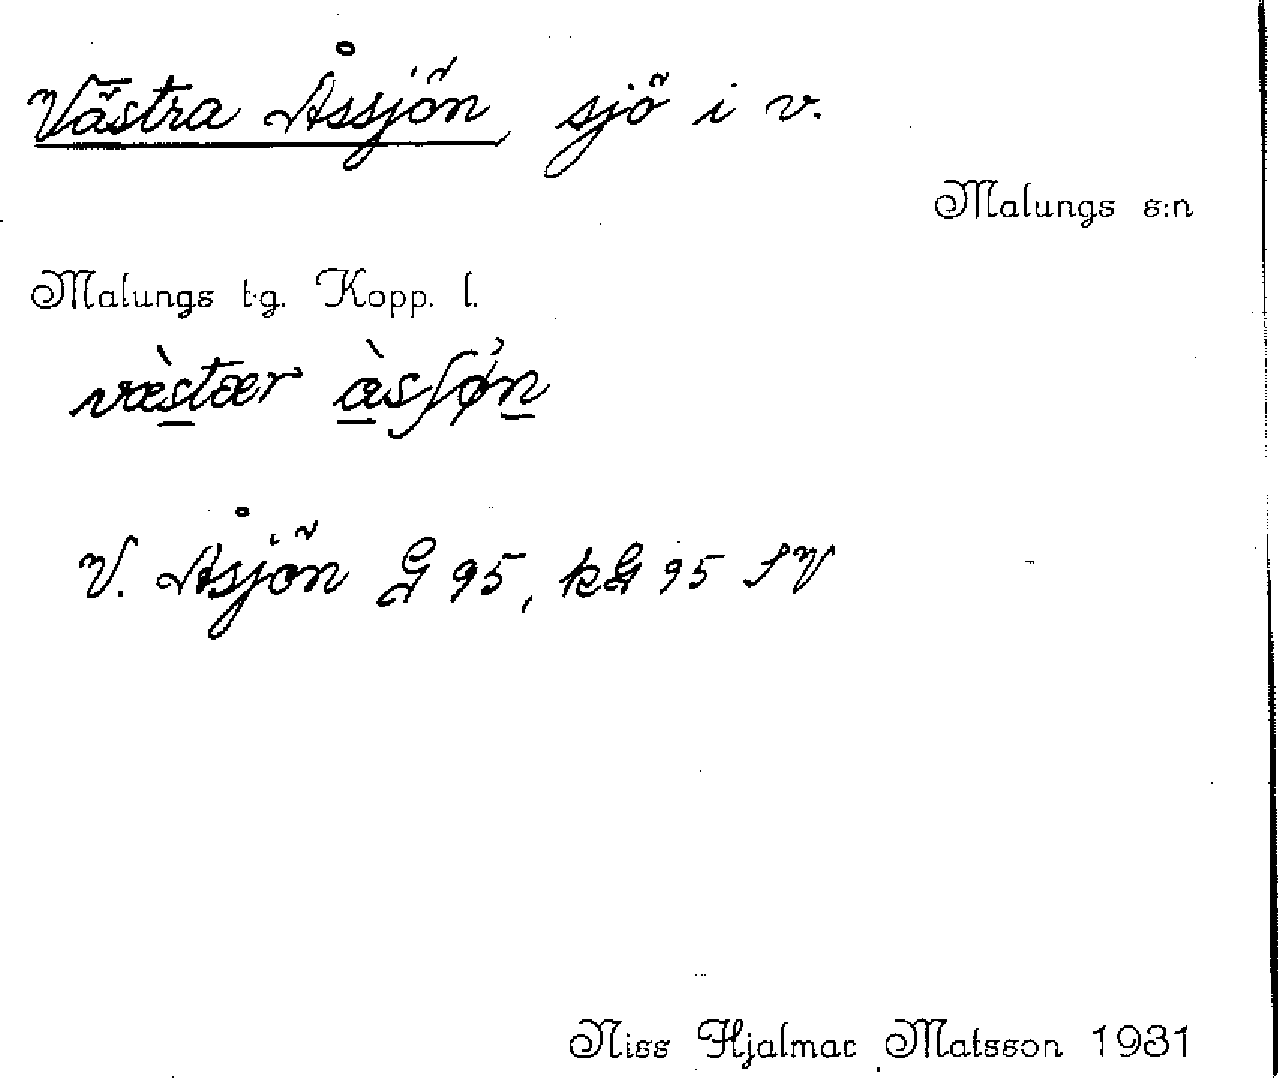 Västra Åssjön, sjö i v.
Malungs s:n
Malungs tg. Kopp. l.
væ̀stær  æ̀sʃøn
V. Åsjön G 95, kG 95 SV
Niss Hjalmar Matsson 1931